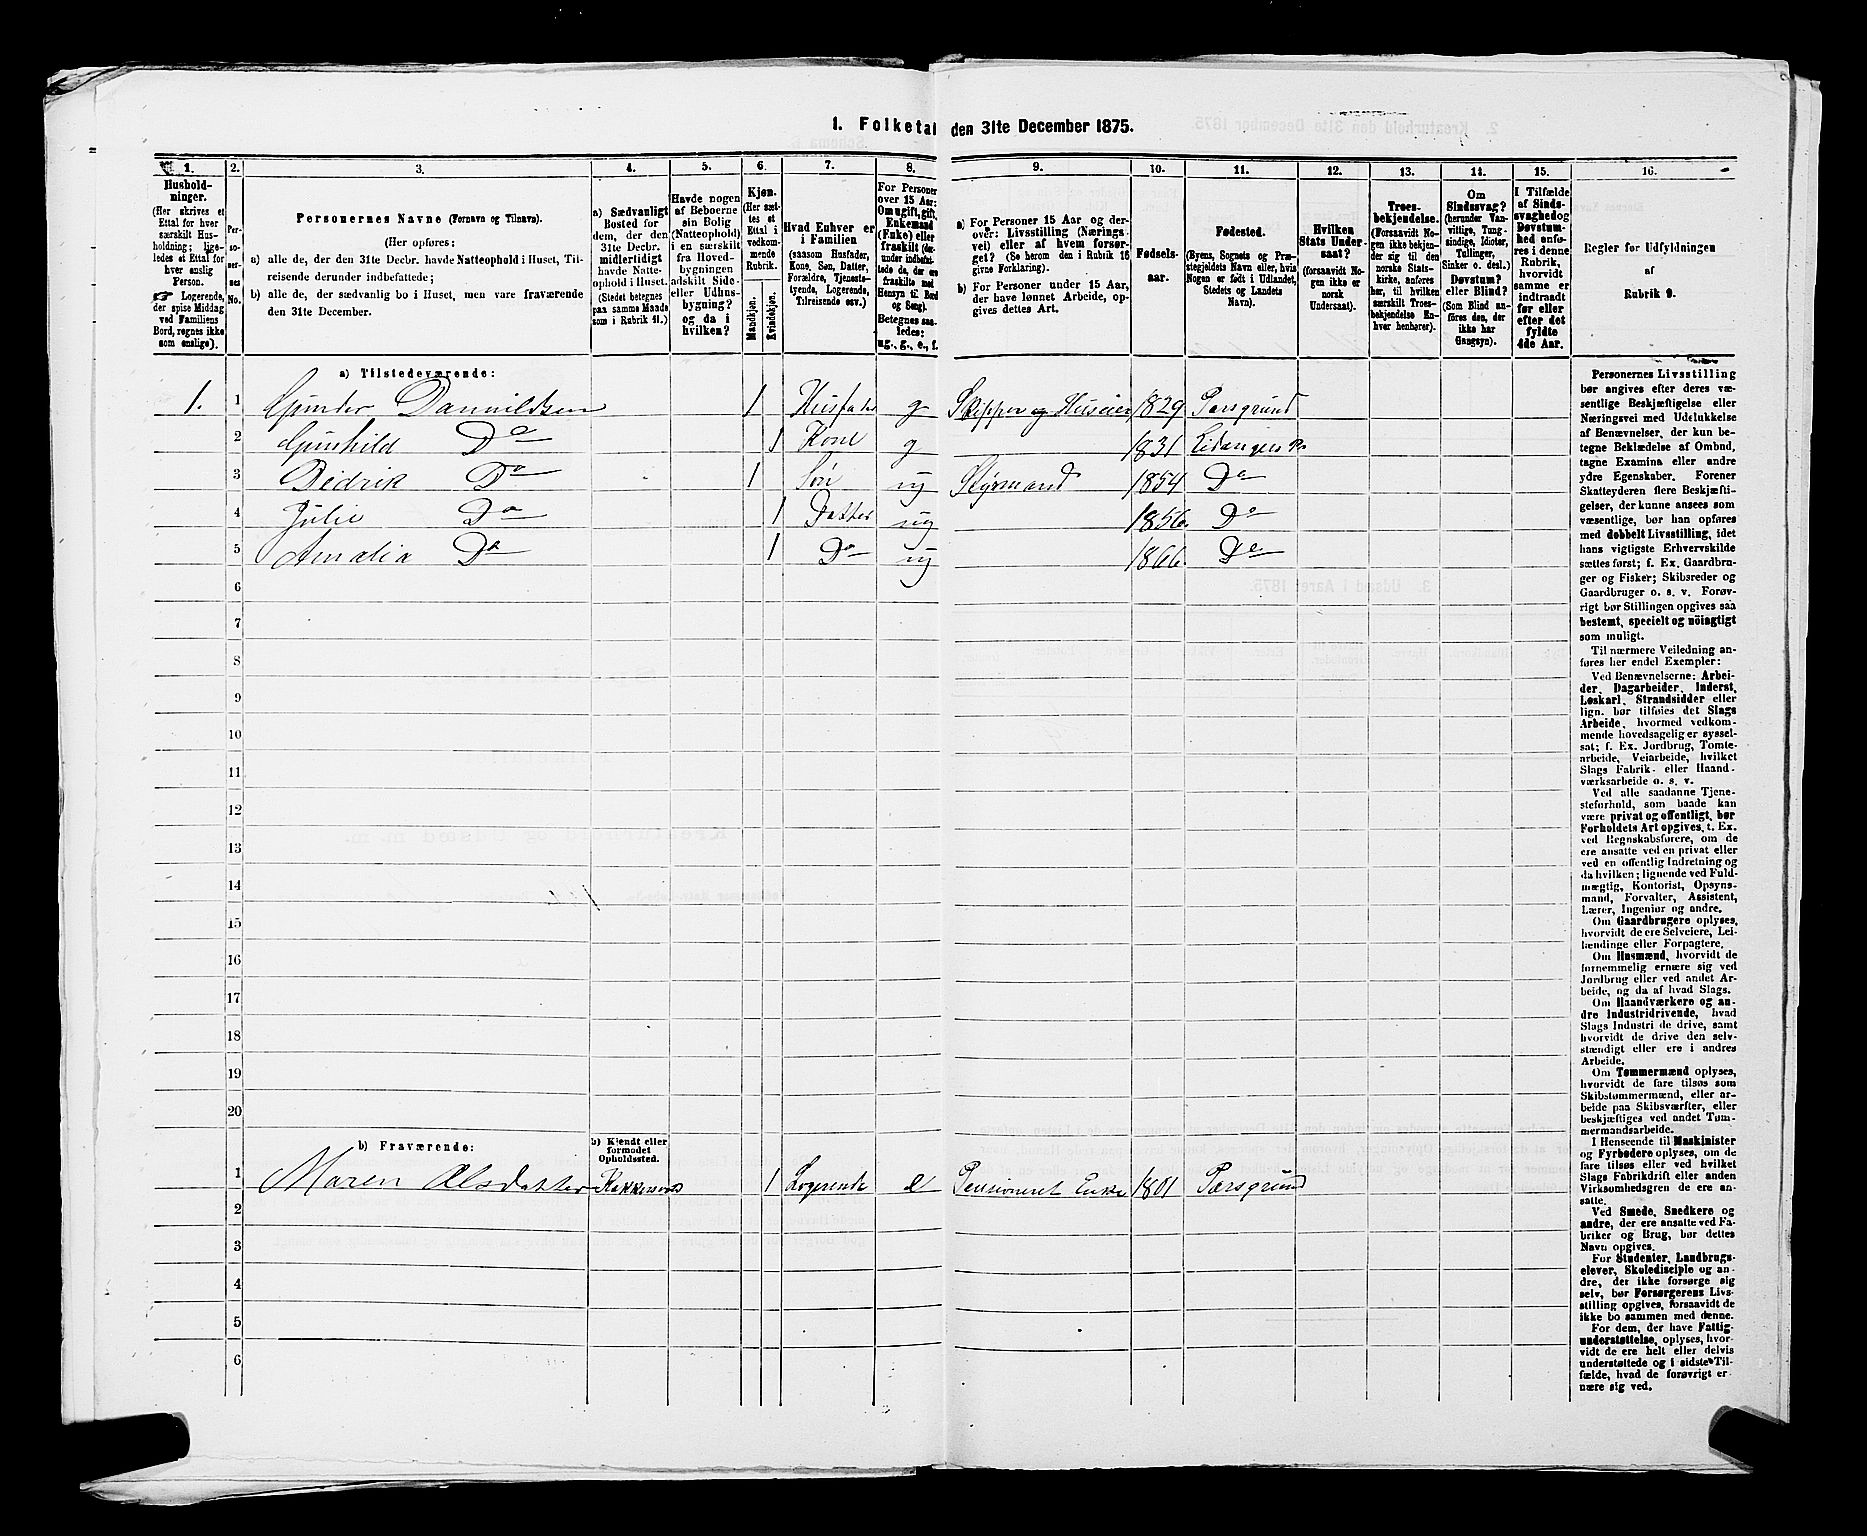 1. Folketal den 31te December 1875.
1. 2. 3. 4. 5. 6. 7. 8. 9. 10. 11. 12. 13. 14. 15. 16.
Hushold-
ninger.
(Her skrives et
Ettal for hver
særskilt Hus-
holdning; lige-
ledes et Ettal for
hver enslig
Person.
☞ Logerende,
der spise Middag
ved Familiens
Bord, regnes ikke
som enslige).
Per-
so-
ner-
ses
No.
Personernes Navne (Fornavn og Tilnavn).
(Her opføres:
a) alle de, der den 31te Decbr. havde Natteophold i Huset, Til-
reisende derunder indbefattede;
b) alle de, der sædvanlig bo i Huset, men vare fraværende
den 31te December.
a) Sædvanligt
Bosted for
dem, der den
31te Decbr.
midlertidigt
havde Natte-
ophold i Huset.
(Stedet betegnes
paa samme Maade
som i Rubrik 11.)
Havde nogen
af Beboerne
sin Bolig
(Natteophold)
i en særskilt
fra Hoved-
bygningen
adskilt Side-
eller Udhus-
bygning?
og da i
hvilken?
Kjøn.
(Her sæt-
tes et
Ettal i
vedkom-
mende
Rubrik.
Mandkjøn.
Kvindekjøn.
Hvad Enhver er
i Familien
(saasom Husfader,
Kone, Søn, Datter,
Forældre, Tjeneste-
tyende, Logerende,
Tilreisende osv.)
For Personer
over 15 Aar:
Om ugift, gift,
Enkemand
(Enke) eller
fraskilt (der-
under indbefat-
tede de, der ere
fraskilte med
Hensyn til Bord
og Seng).
Betegnes saa-
ledes:
ug., g., e., f.
a) For Personer 15 Aar og der-
over: Livsstilling (Nærings-
vei) eller af hvem forsør-
get? (Se herom den i Rubrik 16
givne Forklaring).
b) For Personer under 15 Aar,
der have lønnet Arbeide, op-
gives dettes Art.
Fødsels-
aar.
Fødested.
(Byens, Sognets og Præ-
stegjeldets Navn eller, hvis
Nogen er født i Udlandet,
Stedets og Landets
Navn).
Hvilken
Stats Under-
saat?
(forsaavidt No-
gen ikke er
norsk
Undersaat).
Troes-
bekjendelse.
(Forsaavidt No-
gen ikke bekjen-
der sig til den
norske Stats-
kirke, anføres
her, til hvilken
særskilt Troes-
bekjendelse En-
hver henhører).
Om
Sindssvag?
(herunder Van-
vittige, Tung-
sindige, Idioter,
Tullinger,
Sinker o. desl.)
Døvstum?
eller Blind?
(Som Blind an-
føres den, der
ikke har
Gangsyn).
I Tilfælde
af Sinds-
svaghed og
Døvstum-
hed anfø-
res i denne
Rubrik,
hvorvidt
samme er
indtraadt
før eller
efter det
fyldte
4de Aar.
Regler for Udfyldningen
af
Rubrik 9.
a) Tilstedeværende:
1. 1 Gunder Dannildsen 1 Husfader g Skipper og Huseier 1829 Porsgrund
2 Gunhild Do 1 Kone g 1831 Eidanger
3 Didrik Do 1 Søn ug Styrmand 1854 Do
4 Julie Do 1 Datter ug 1856. Do
5 Amalia Do 1 Do ug 1866. Do
6
7
8
9
10
11
12
13
14
15
16
17
18
19
20
b) Fraværende:
b) Kjendt eller
formodet
Opholdssted.
1 Maren Olsdatter 1 Logerende e Pensioneret Enke 1801 Porsgrund
2
3
4
5
6
Personernes Livsstilling
bør angives efter deres væ-
sentlige Beskjæftigelse eller
Næringsvei med Udelukkelse
af Benævnelser, der kun be-
tegne Beklædelse af Ombud,
tagne Examina eller andre
ydre Egenskaber. Forener
Skatteyderen flere Beskjæfti-
gelser, der kunne ansees som
væsentlige, bør han opføres
med dobbelt Livsstilling, idet
hans vigtigste Erhvervskilde
sættes først; f. Ex. Gaardbru-
ger og Fisker; Skibsreder og
Gaardbruger o. s. v. Forøv-
rigt bør Stillingen opgives saa
bestemt, specielt og nøiagtigt
som muligt.
Til nærmere Veiledning an-
føres her endel Exempler:
Ved Benævnelserne: Arbei-
der, Dagarbeider, Inderst,
Løskarl, Strandsidder eller
lign. bør tilføies det Slags
Arbeide, hvormed vedkom-
mende hovedsagelig er syssel-
sat; f. Ex. Jordbrug, Tomte-
arbeide, Veiarbeide, hvilket
Slags Fabrik- eller Haand-
værksarbeide o. s. v.
Ved alle saadanne Tjene-
steforhold, som baade kan
være privat og offentligt, bør
Forholdets Art opgives, t. Ex.
ved Regnskabsførere, om de
ere ansatte ved en privat eller
ved en offentlig Indretning og
da hvilken; lignende ved Fuld-
mægtig, Kontorist, Opsyns-
mand, Forvalter, Assistent,
Lærer, Ingeniør og andre.
Om Gaardbrugere oplyses,
hvorvidt de ere Selveiere, Lei-
lændinge eller Forpagtere.
Om Husmænd, hvorvidt de
fornemmelig ernære sig ved
Jordbrug eller ved andet Ar-
beide, og da af hvad Slags.
Om Haandværkere og an-
dre Industridrivende, hvad
Slags Industri de drive, samt
hvorvidt de drive den selv-
stændigt eller ere i andres
Arbeide.
Om Tømmermænd oplyses,
hvorvidt de fare tilsøs som
Skibstømmermænd, eller ar-
beide paa Skibsværfter, eller
beskjæftiges ved andet Tøm-
mermandsarbeide.
I Henseende til Maskinister
og Fyrbødere oplyses, om de
fare tilsøs eller ved hvilket
Slags Fabrikdrift eller anden
Virksomhedsgren de ere an-
satte.
Ved Smede, Snedkere og
andre, der ere ansatte ved Fa-
briker og Brug, bør dettes
Navn opgives.
For Studenter, Landbrugs-
elever, Skoledisciple og an-
dre, der ikke forsørge sig
selv, bør Forsørgerens Livs-
stilling opgives, forsaavidt de
ikke bo sammen med denne.
For dem, der have Fattig-
understøttelse, oplyses, hvor-
vidt de ere helt eller delvis
understøttede og i sidste Til-
fælde, hvad de forøvrigt er-
nære sig ved.